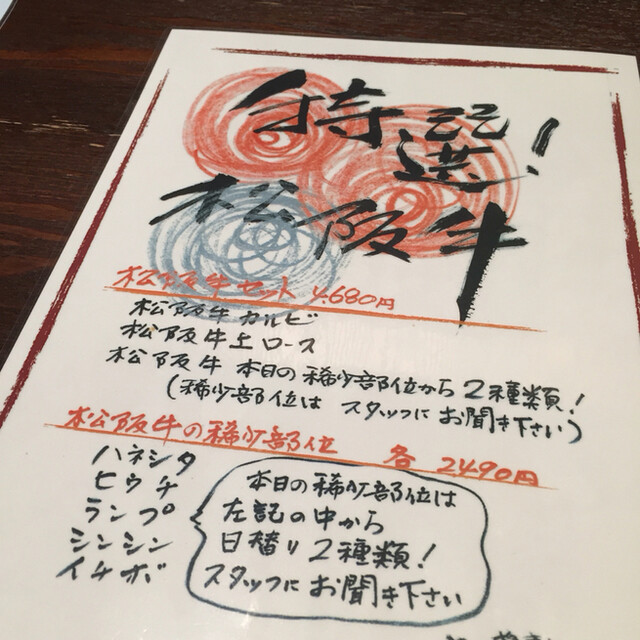 特選!
松阪牛
松阪牛セット 4,680円
松阪牛カルビ
松阪牛上ロース
松阪牛 本日の稀少部位から2種類!
(稀少部位は スタッフに お聞き下さい)
松阪牛の稀少部位 各 2490円
ハネシタ
ヒウチ
ランプ
シンシン
イチボ
本日の稀少部位は
左記の中から
日替り2種類!
スタッフに お聞き下さい